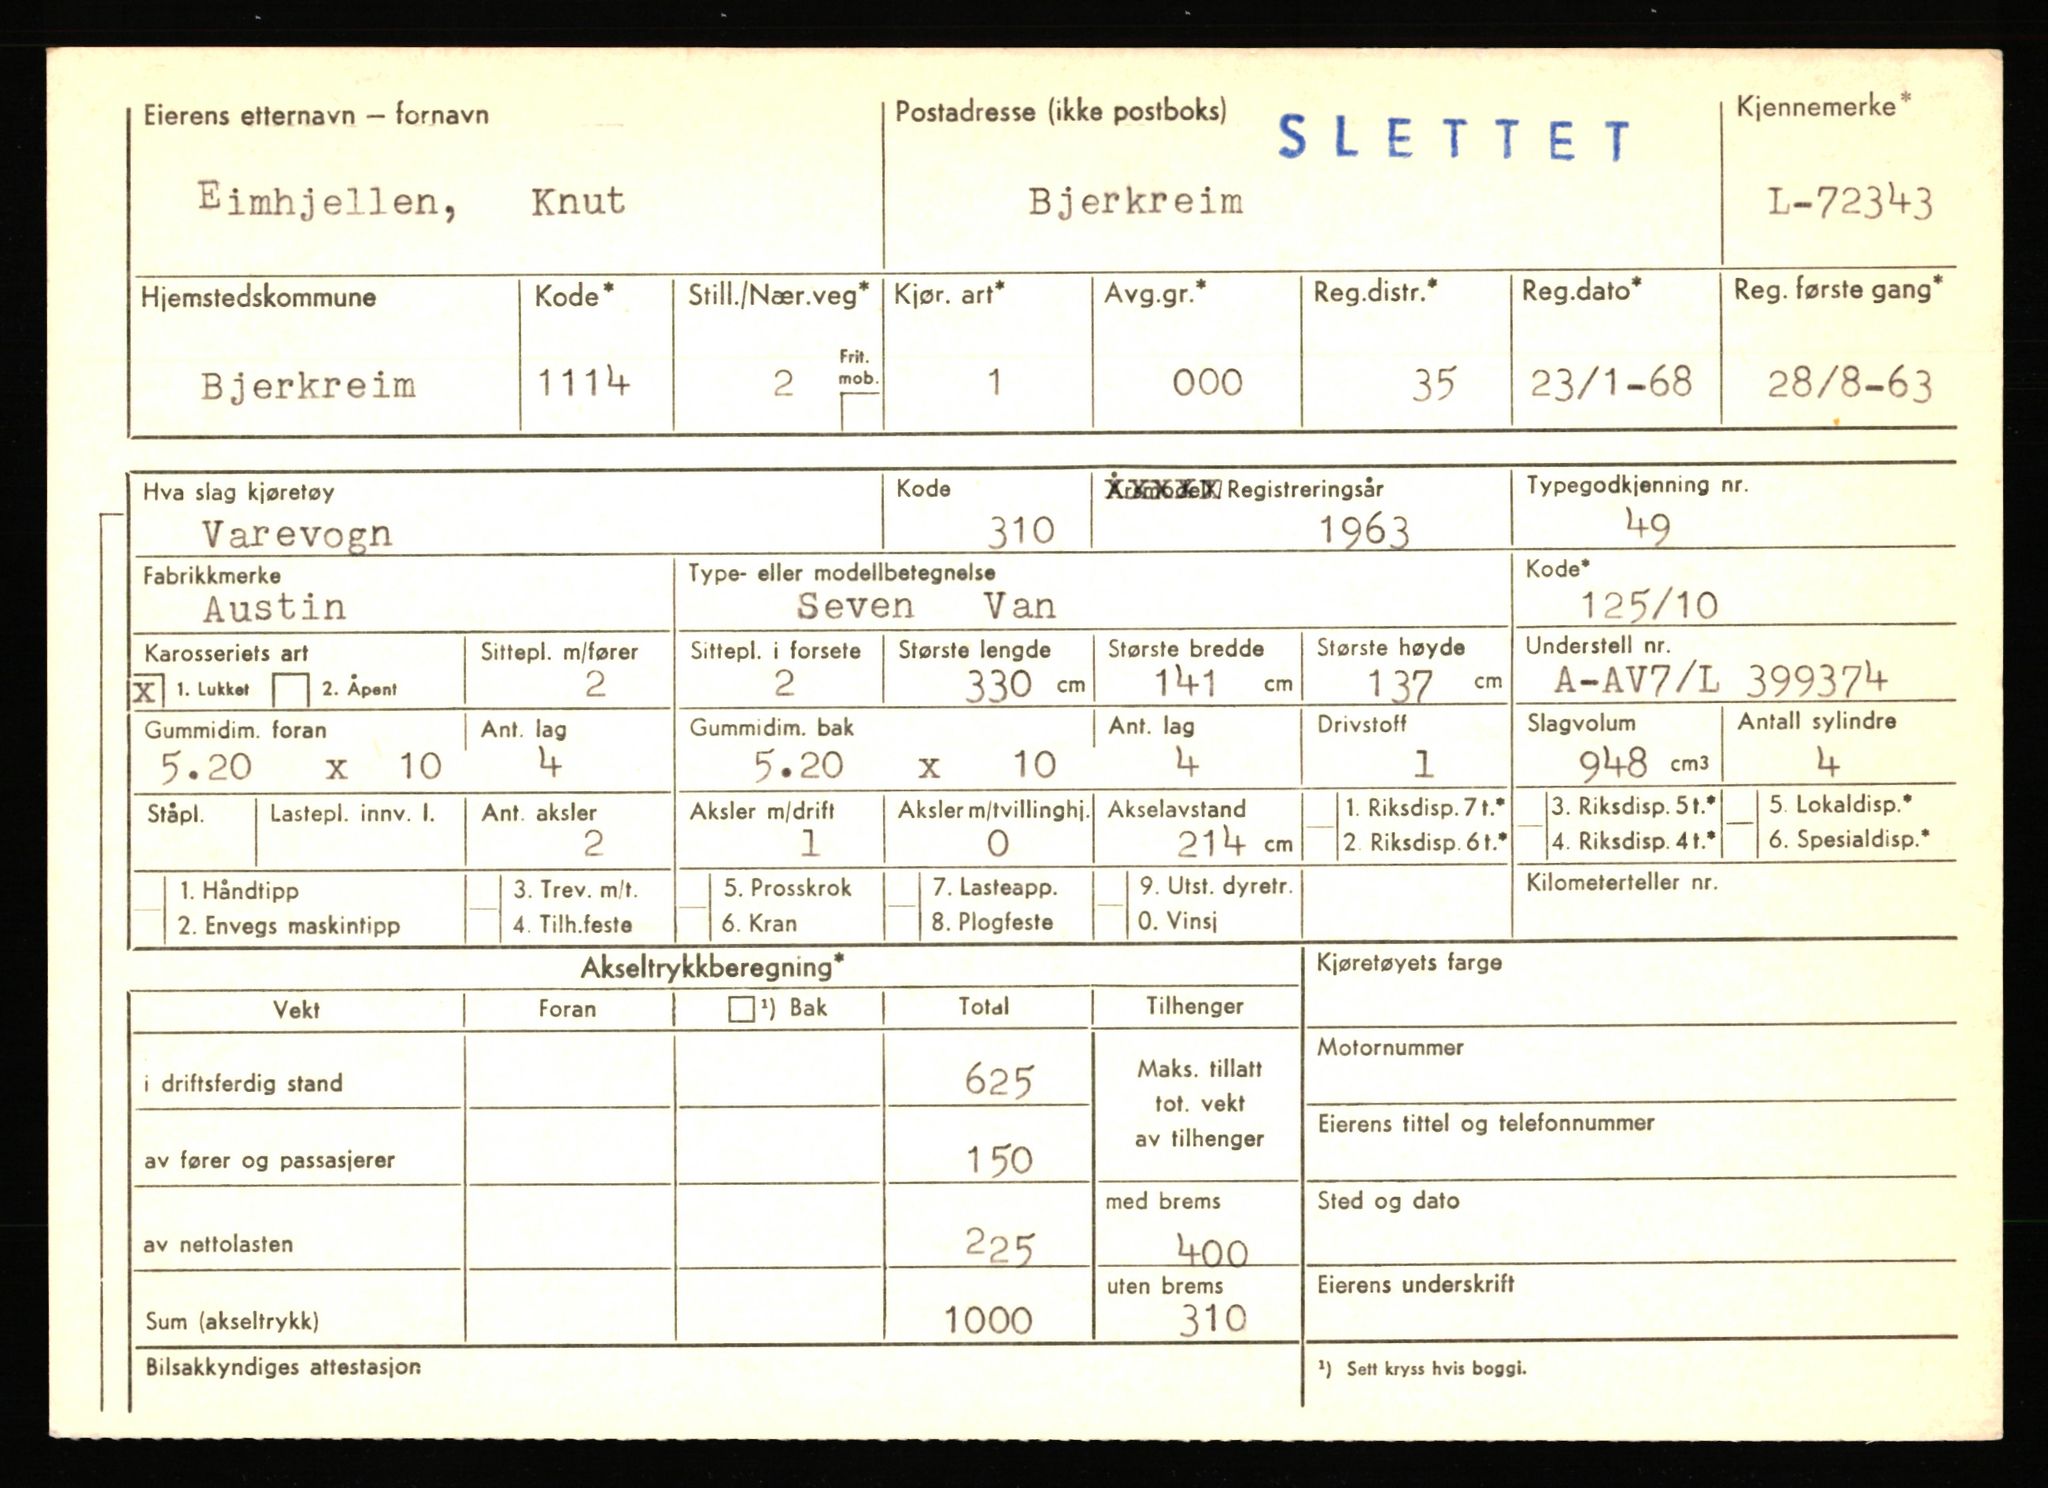 Eierens etternavn – fornavn
Postadresse (ikke postboks)
SLETTET
Kjennemerke*
Eimhjellen, Knut
Bjerkreim
L-72343
Hjemstedskommune Kode* Still./Nær.veg* Kjør. art* Avg.gr.* Reg.distr.* Reg.dato* Reg. første gang*
Frit. mob.
Bjerkreim 1114 2 1 000 35 23/1-68 28/8-63
Hva slag kjøretøy Kode Årsmodell/Registreringsår Typegodkjenning nr.
Varevogn 310 1963 49
Fabrikkmerke Type- eller modellbetegnelse Kode*
Austin Seven Van 125/10
Karosseriets art Sittepl. m/fører Sittepl. i forsete Største lengde Største bredde Største høyde Understell nr.
X 1. Lukket 2. Åpent 2 2 330 cm 141 cm 137 cm A-AV7/L 399374
Gummidim. foran Ant. lag Gummidim. bak Ant. lag Drivstoff Slagvolum Antall sylindre
5.20 x 10 4 5.20 x 10 4 1 948 cm3 4
Ståpl. Lastepl. innv. l. Ant. aksler Aksler m/drift Aksler m/tvillinghj. Akselavstand 1. Riksdisp. 7 t.* 3. Riksdisp. 5 t.* 5. Lokaldisp.*
2 1 0 214 cm 2. Riksdisp. 6 t.* 4. Riksdisp. 4 t.* 6. Spesialdisp.*
1. Håndtipp 3. Trev. m/t. 5. Prosskrok 7. Lasteapp. 9. Utst. dyretr. Kilometerteller nr.
2. Envegs maskintipp 4. Tilh.feste 6. Kran 8. Plogfeste 0. Vinsj
Akseltrykkberegning* Kjøretøyets farge
Vekt Foran ¹) Bak Total Tilhenger
i driftsferdig stand 625
Maks. tillatt
tot. vekt
av tilhenger
Motornummer
av fører og passasjerer 150
Eierens tittel og telefonnummer
av nettolasten 225
med brems
400
Sted og dato
Sum (akseltrykk) 1000
uten brems
310
Eierens underskrift
Bilsakkyndiges attestasjon
¹) Sett kryss hvis boggi.